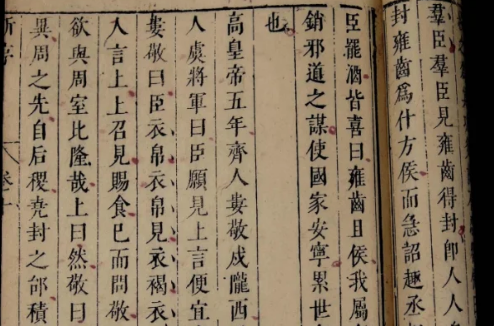 羣臣羣臣見雍齒得封卽人人
封雍齒爲什方侯而急詔趣丞
臣罷酒皆喜曰雍齒且侯我屬
銷邪道之謀使國家安寧累世
也
高皇帝五年齊人婁敬戍隴西
人虞將軍曰臣願見上言便宜
婁敬曰臣衣帛衣帛見衣褐衣
入言上上召見賜食已而問敬
欲與周室比隆哉上曰然敬曰
異周之先自后稷堯封之邰積